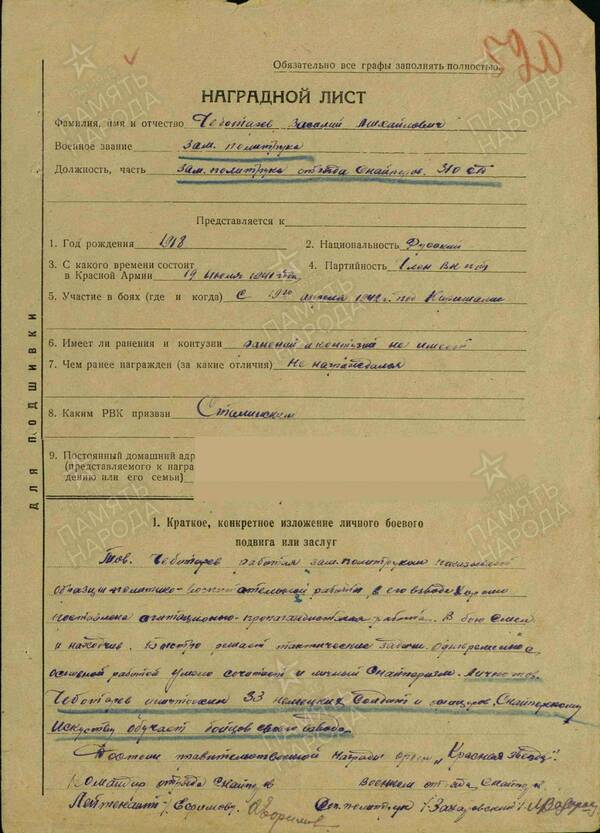 Обязательно все графы заполнять полностью.
НАГРАДНОЙ ЛИСТ
Фамилия, имя и отчество Чеботарев Василий Михайлович
Военное звание зам. политрука
Должность, часть зам. политрука отряда снайперов. 310 сд
Представляется к
1. Год рождения 1918 2. Национальность Русский
3. С какого времени состоит
в Красной Армии 19 июля 1941 года 4. Партийность Член ВКП(б)
5. Участие в боях (где и когда) С 19го апреля 1942 г. под Киришами
6. Имеет ли ранения и контузии ранений и контузий не имеет
7. Чем ранее награжден (за какие отличия) Не награждался
8. Каким РВК призван Сталинским
9. Постоянный домашний адр
(представляемого к награ
дению или его семьи)
ДЛЯ ПОДШИВКИ
1. Краткое, конкретное изложение личного боевого
подвига или заслуг
Тов. Чеботарев работая зам. политруком показывает
образцы политико-воспитательной работы в его взводе хорошо
построена агитационно-пропагандистская работа. В бою смел
и находчив. Быстро решает тактические задачи. Одновременно с
основной работой умело сочетает и личный снайперизм. Лично тов.
Чеботарев уничтожил 33 немецких солдат и офицеров. Снайперскому
искусству обучает бойцов своего взвода.
Достоин правительственной награды орден „Красная звезда".
Командир отряда снайперов Военком отряда снайперов
Лейтенант /Ефимов/ Ст. политрук /Захаровский/
ПАМЯТЬ
НАРОДА